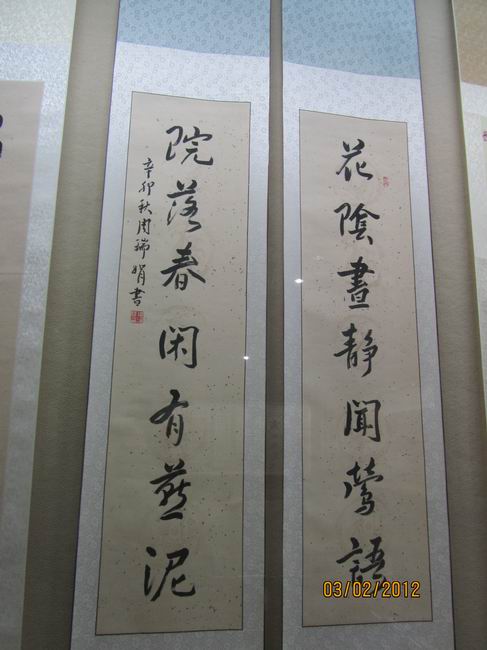 花陰晝靜聞鶯語
院落春閑有燕泥
辛卯秋周瑞娟書
03/02/2012